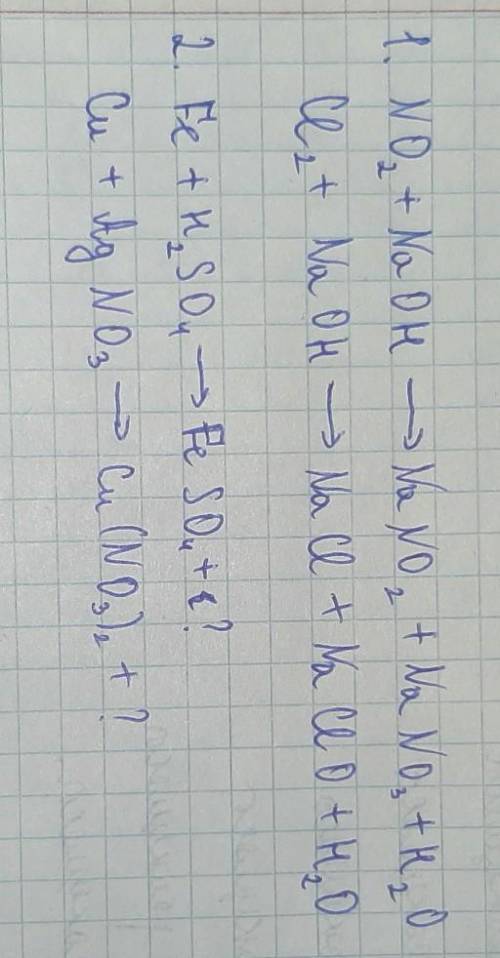 1. NO₂ + NaOH → NaNO₂ + NaNO₃ + H₂O
Cl₂ + NaOH → NaCl + NaClO + H₂O
2. Fe + H₂SO₄ → FeSO₄ + ?
Cu + AgNO₃ → Cu(NO₃)₂ + ?